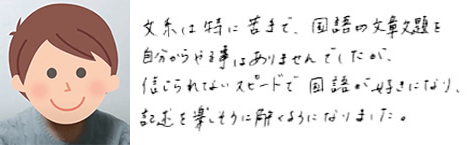 文系は特に苦手で、国語の文章文題を
自分からやる事はありませんでしたが、
信じられないスピードで国語が好きになり、
記述を楽しそうに解くようになりました。